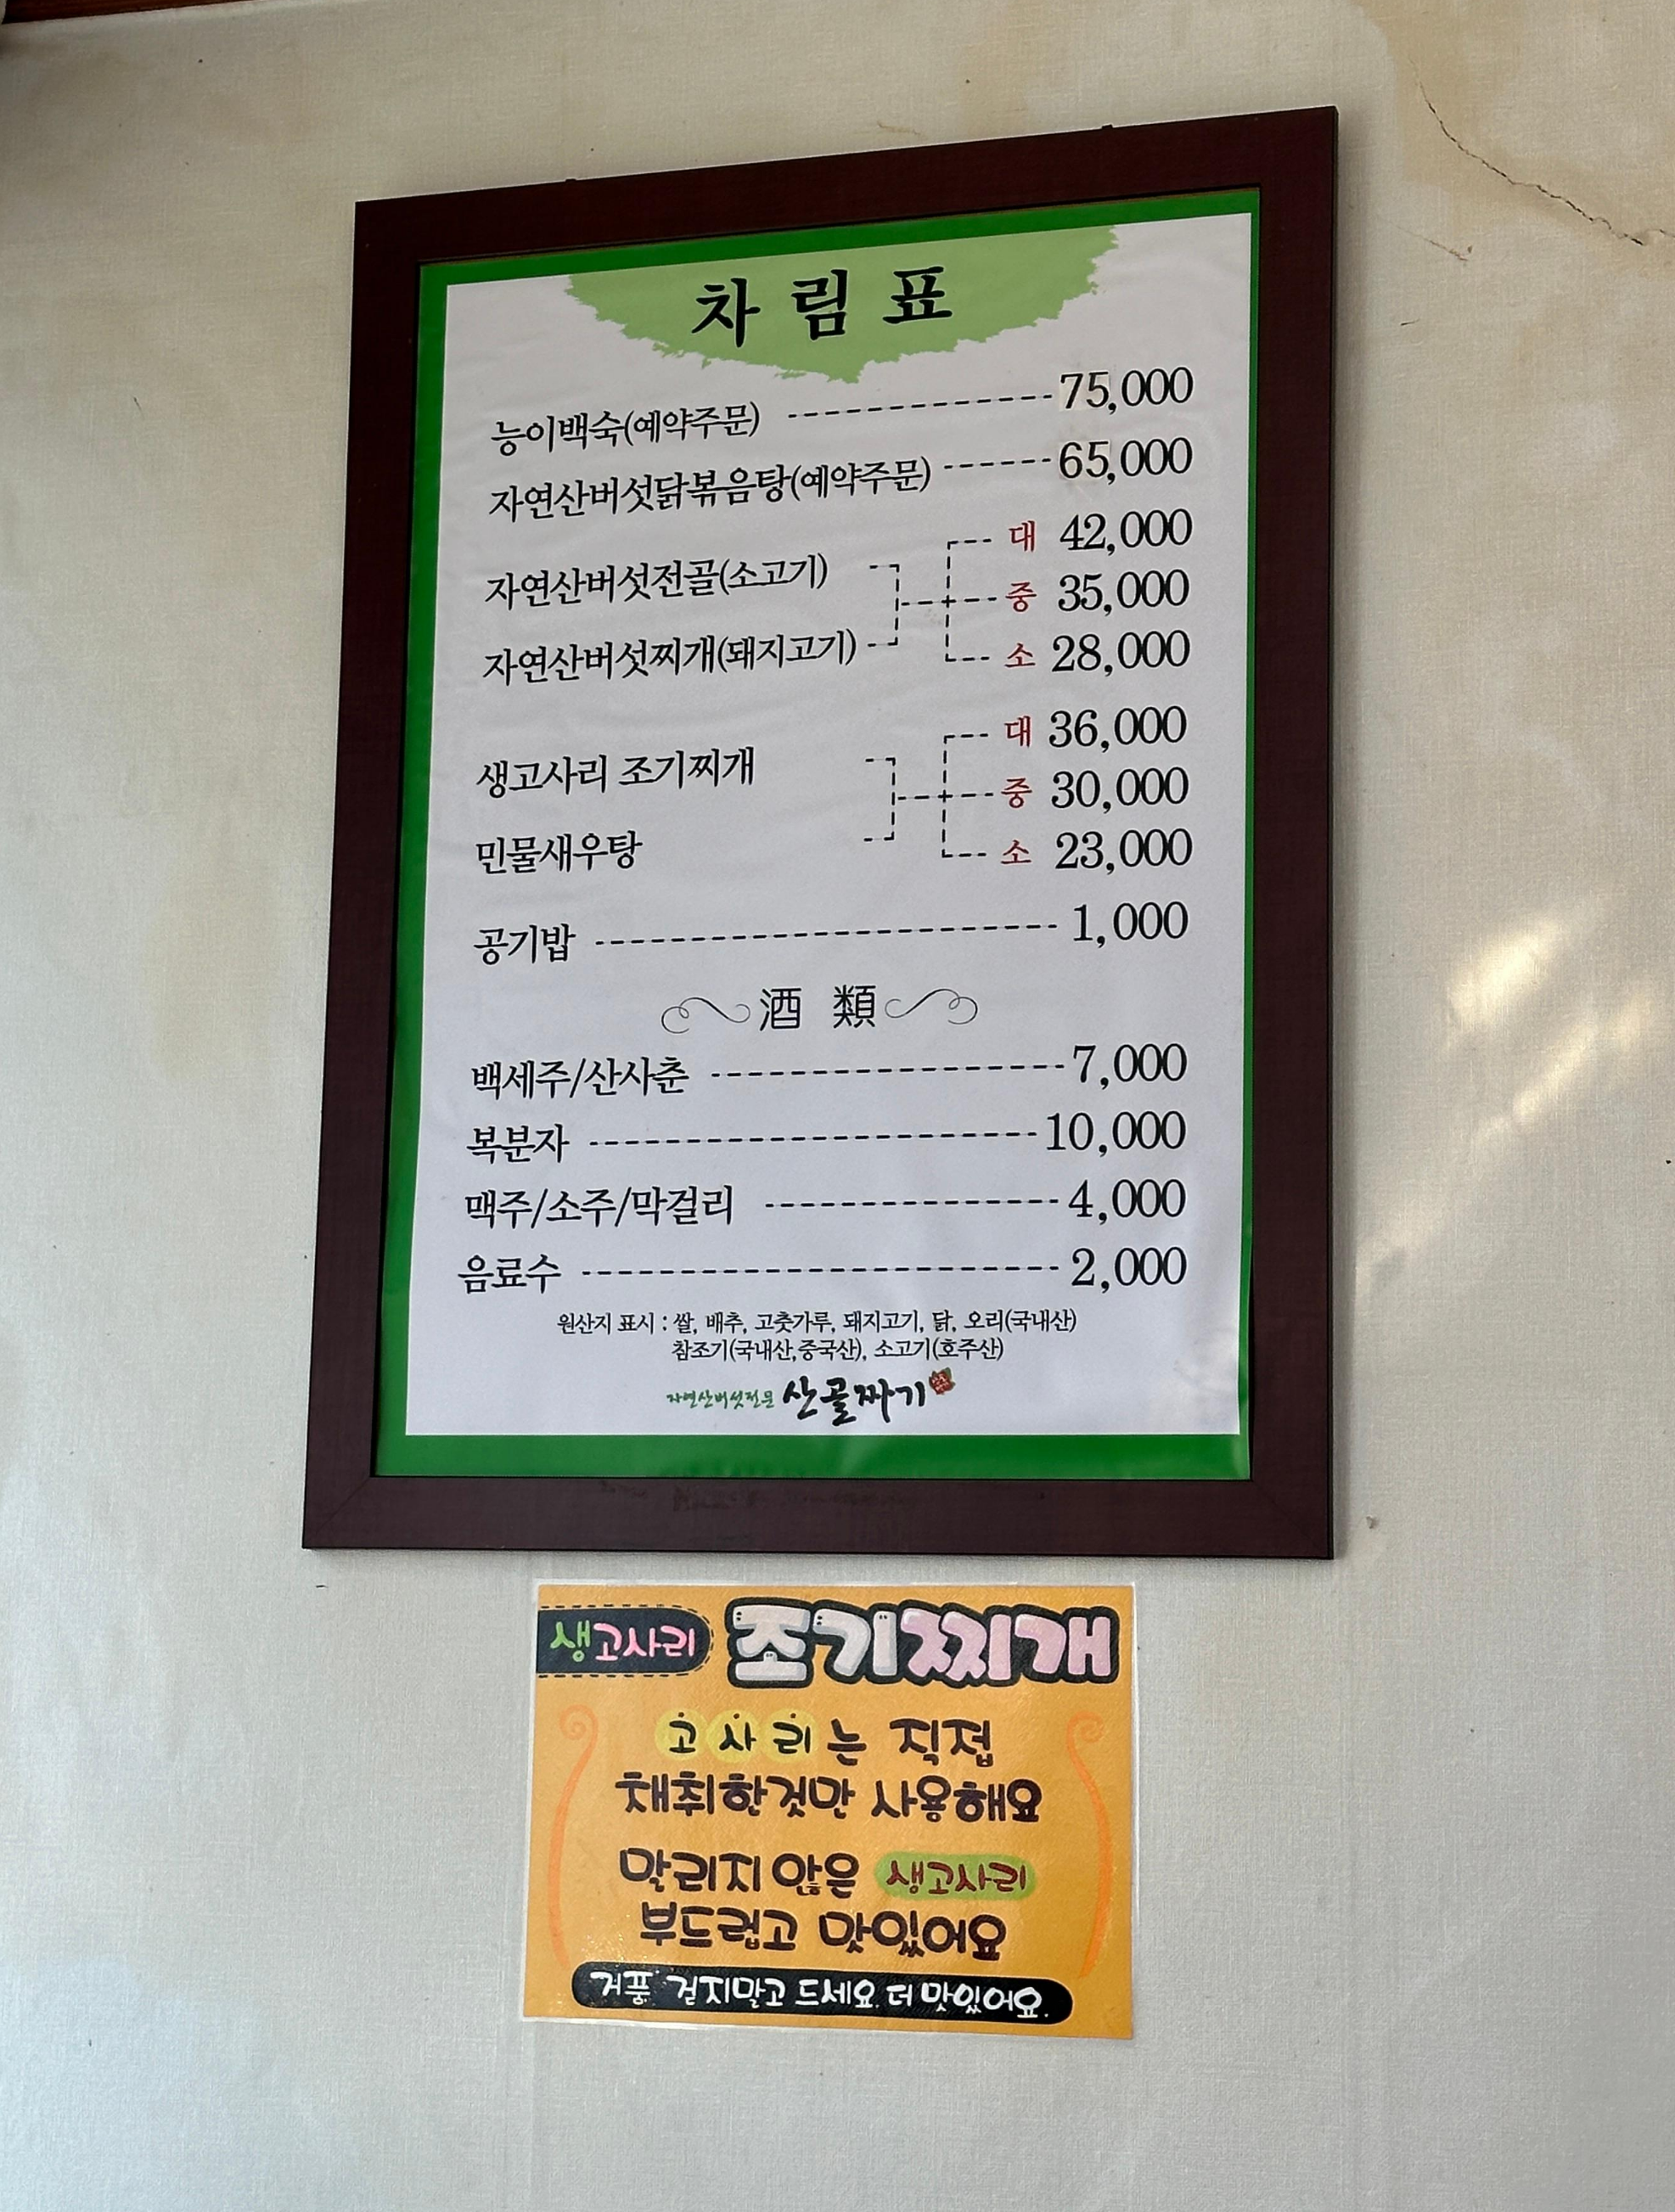 차림표
능이백숙(예약주문) 75,000
자연산버섯닭볶음탕(예약주문) 65,000
자연산버섯전골(소고기)
자연산버섯찌개(돼지고기)
대 42,000
중 35,000
소 28,000
생고사리 조기찌개
민물새우탕
대 36,000
중 30,000
소 23,000
공기밥 1,000
酒類
백세주/산사춘 7,000
복분자 10,000
맥주/소주/막걸리 4,000
음료수 2,000
원산지 표시 : 쌀, 배추, 고춧가루, 돼지고기, 닭, 오리(국내산)
참조기(국내산,중국산), 소고기(호주산)
자연산버섯전문 산골짜기
생고사리 조기찌개
고사리는 직접
채취한것만 사용해요
말리지않은 생고사리
부드럽고 맛있어요
거품 걷지말고 드세요. 더 맛있어요.